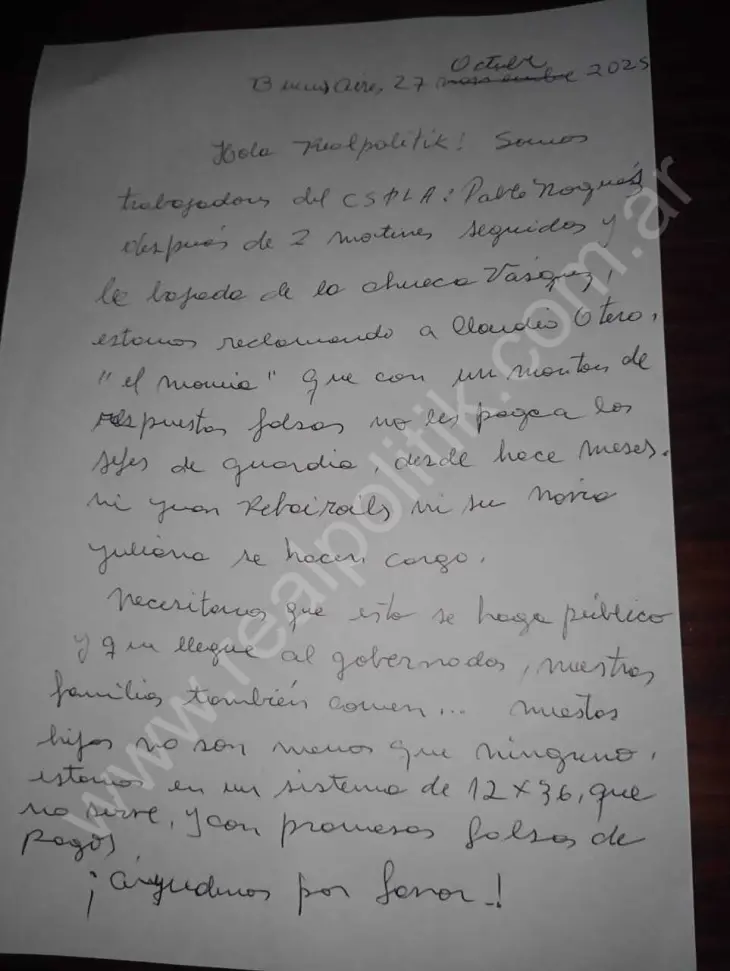 Octubre
Buenos Aires, 27 noviembre 2025
Hola Realpolitik! Somos
trabajadores del CSPLA: Pablo Nogués
después de 2 motines seguidos y
le bajada de la chueca Vásquez,
estamos reclamando a Claudio Otero,
"el momia" que con un montón de
respuestas falsas no les pagca a los
jefes de guardia, desde hace meses.
ni Juan ni su novia
Juliana se hacen cargo.
Necesitamos que esto se haga público
y que llegue al gobernador, nuestras
familias también comen... nuestros
hijos no son menos que ninguno.
estamos en un sistema de 12x36, que
no sirve, y con promesas falsas de
pagos
¡Ayudenos por favor!
www.realpolitik.com.ar